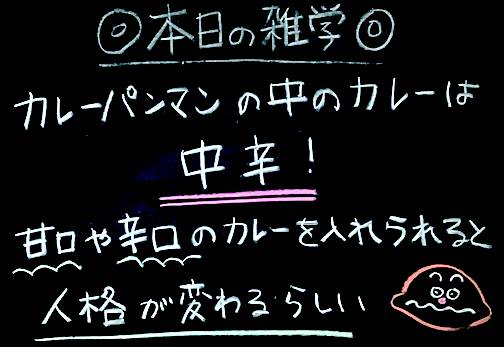 ◎本日の雑学◎
カレーパンマンの中のカレーは
中辛!
甘口や辛口のカレーを入れられると
人格が変わるらしい